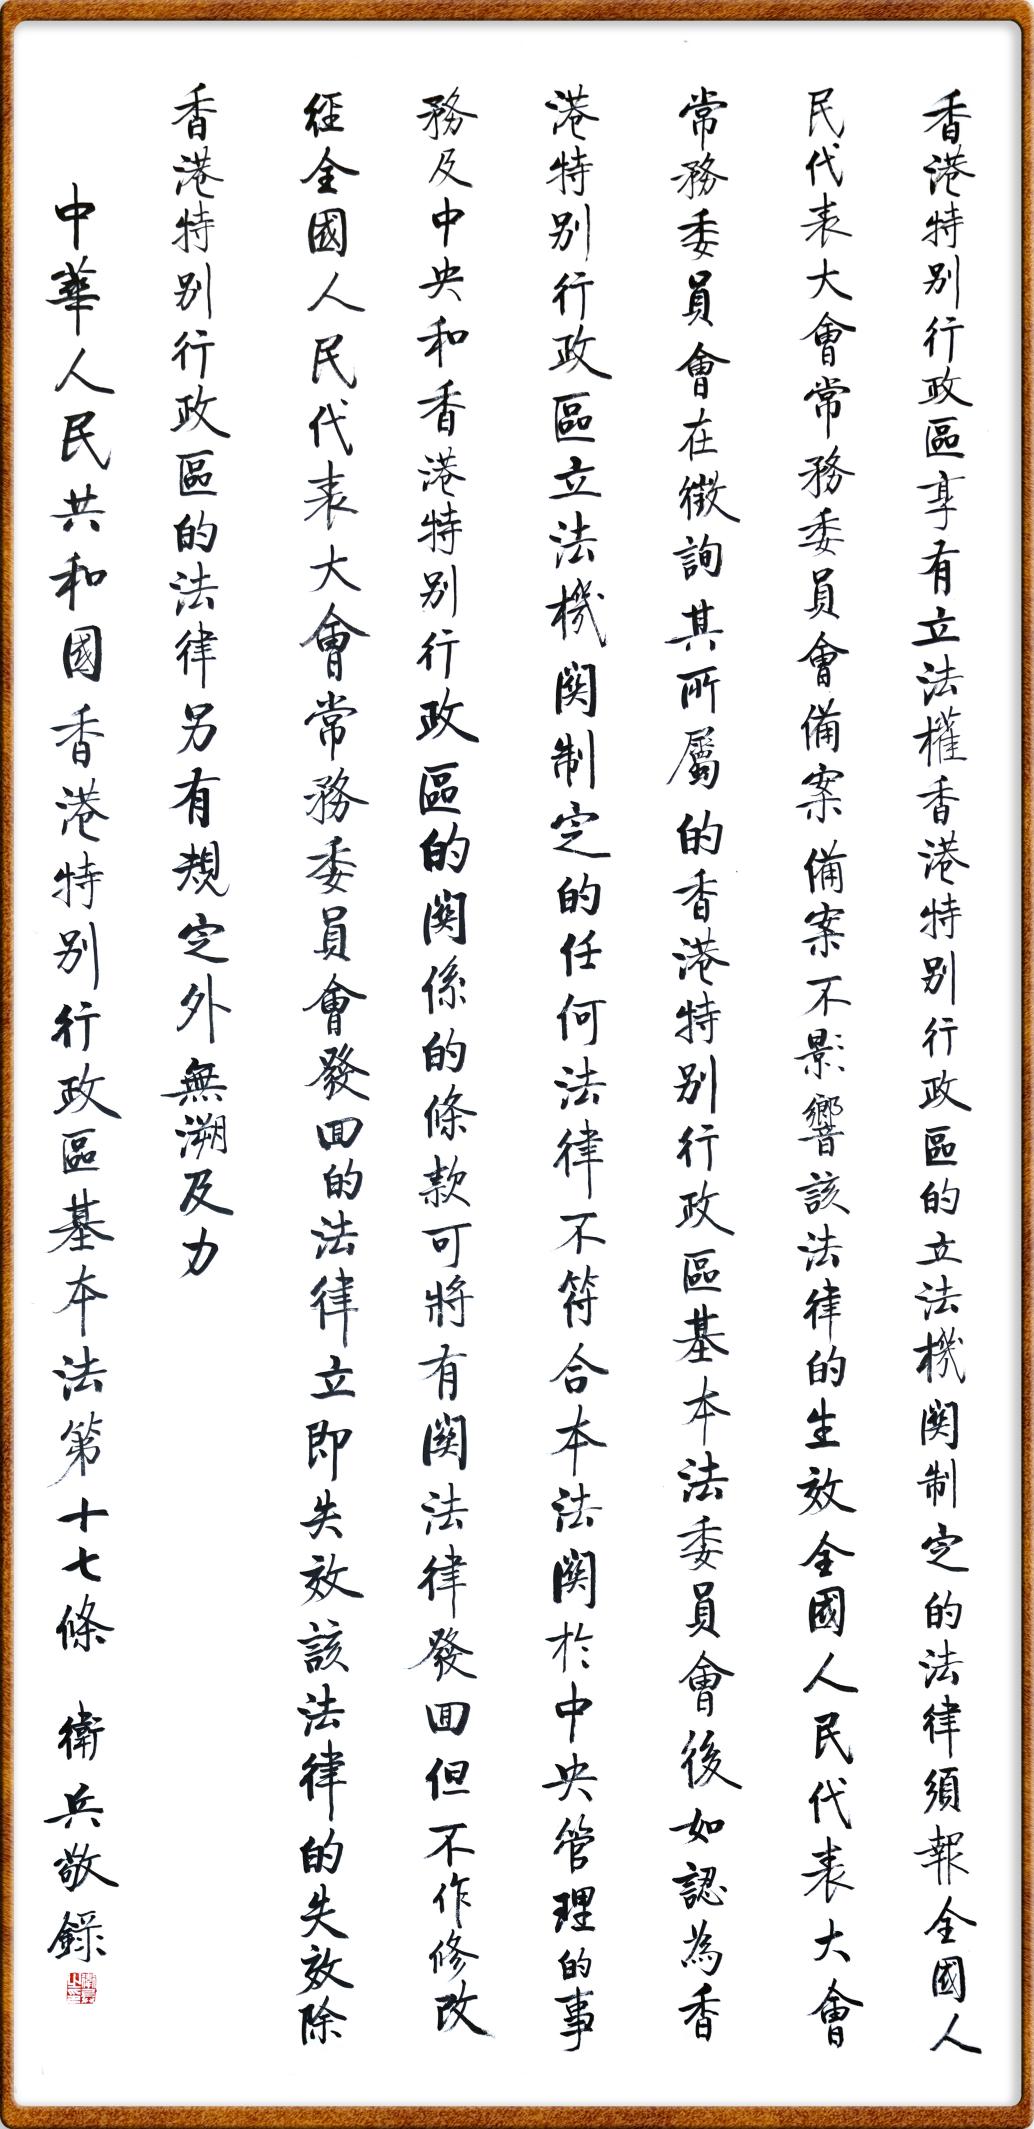 香港特别行政區享有立法權香港特别行政區的立法機関制定的法律須報全國人
民代表大會常務委員會備案備案不影響該法律的生效全國人民代表大會
常務委員會在徵詢其所屬的香港特别行政區基本法委員會後如認為香
港特别行政區立法機関制定的任何法律不符合本法関於中央管理的事
務及中央和香港特别行政區的関係的條款可將有関法律發回但不作修改
經全國人民代表大會常務委員會發回的法律立即失效該法律的失效除
香港特别行政區的法律另有規定外無溯及力
中華人民共和國香港特别行政區基本法第十七條 衛兵敬錄